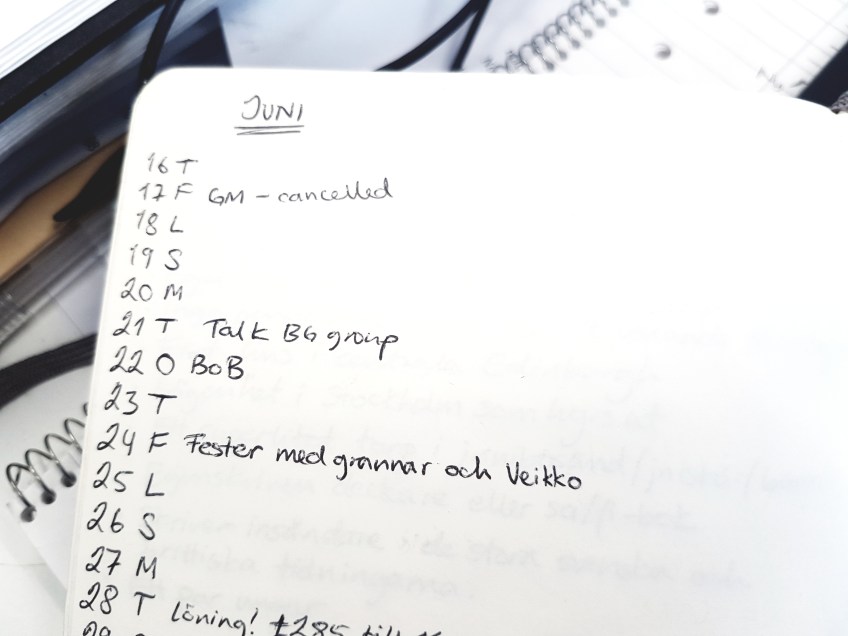 JUNI
16 T
17 F GM - cancelled
18 L
19 S
20 M
21 T Talk BG group
22 O BoB
23 T
24 F Fester med grannar och Veikko
25 L
26 S
27 M
28 T löning! £285 till
29